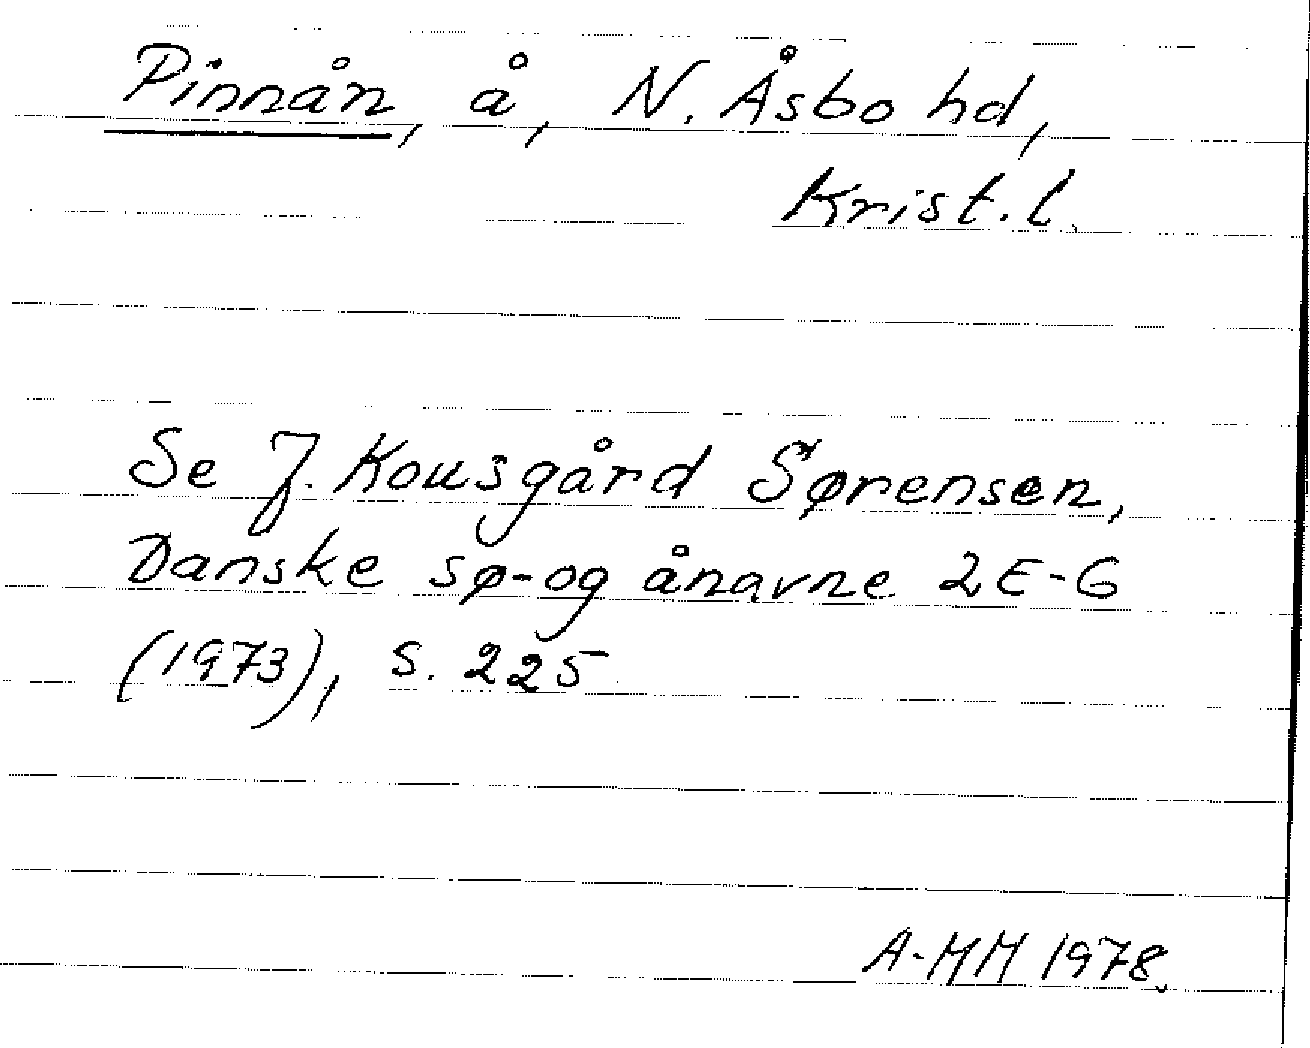 Pinnån, å, N. Åsbo hd,
Krist. l.
Se J. Kousgård Sørensen,
Danske sø- og ånavne 2 E-G
(1973), s. 225
A-MM 1978.